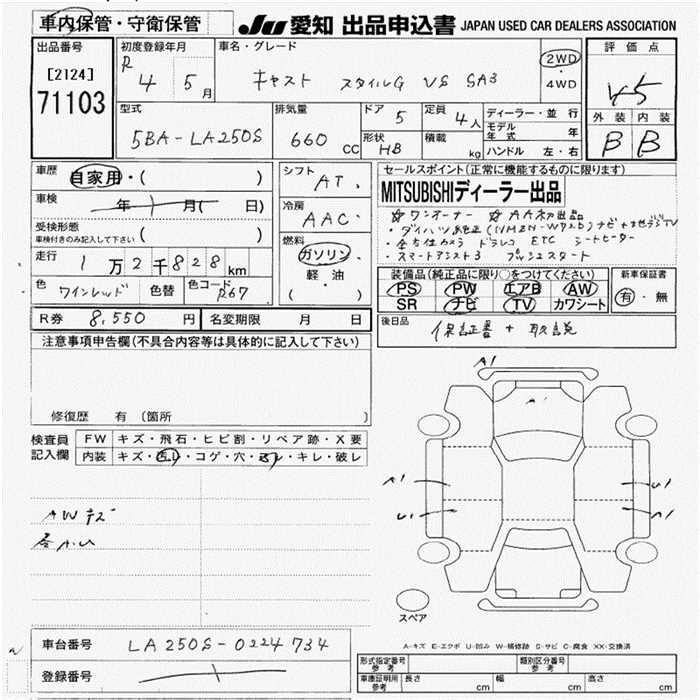 車内保管・守衛保管
JU 愛知 出品申込書 JAPAN USED CAR DEALERS ASSOCIATION
出品番号
[2124]
71103
初度登録年月
R 4 5月
車名・グレード
キャスト スタイルG VS SA3
2WD
・
4WD
評価点
4.5
外装 内装
B B
型式
5BA-LA250S
排気量
660 cc
ドア 5
形状 HB
定員 4人
積載 kg
ディーラー・並行
モデル年式 年
ハンドル 左・右
車歴
自家用・( )
車検
年 月( 日)
受検形態
車検付きのみ記入して下さい ( )
走行
1万2千828km
色 ワインレッド 色替 色コード R67
シフト AT
冷房 AAC
燃料
ガソリン
軽・油
( )
セールスポイント(正常に機能するものに限ります)
MITSUBISHIディーラー出品
☆ワンオーナー ☆AA初出品
・ダイハツ純正(NMZN-W72D)ナビ+地デジTV
・全方位カメラ ドラレコ ETC シートヒーター
・スマートアシスト3 プッシュスタート
装備品(純正品に限り○をつけてください)
PS PW エアB AW
SR ナビ TV カワシート
新車保証書
有・無
R券 8,550円 名変期限 月 日
後日品
保証書 + 取説
注意事項申告欄(不具合内容等は具体的に記入して下さい)
修復歴 有(箇所 )
検査員記入欄
FW キズ・飛石・ヒビ割・リペア跡・X要
内装 キズ・汚レ・コゲ・穴・スレ・キレ・破レ
AWキズ
各A.U
A1
A1
A1 U1
U1 A1
スペア
A-キズ E-エクボ U-凹み W-補修跡 S-サビ C-腐食 XX-交換済
車台番号 LA250S-0224734
登録番号
形式指定番号 参考 類別区分番号 参考
車庫証明用 参考 長さ cm 幅 cm 高さ cm